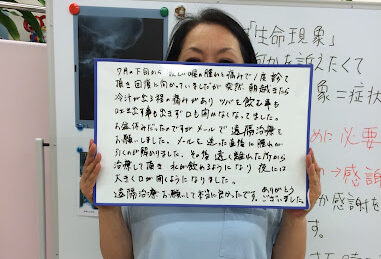 「生命現象」
何かを訴えたくて
象＝症状
めに必要
か感謝を
す。
7月の下旬から 激しい喉の腫れと痛みで1度診て
頂き回復に向かっていましたが突然、朝起きたら
冷汗が出る程の痛みがあり ツバを飲む事も
吐き出す事も出来ず口も開かなくなってました。
お盆休みだったのですがメールで遠隔治療を
お願いしました。メールを送った直後に腫れが
引くのが解かりました。その後 遠く離れた所から
治療して頂き 水が飲めるようになり 夜には
大きく口が開くようになりました。
遠隔治療お願いして本当に良かったです。ありがとう
ございました。